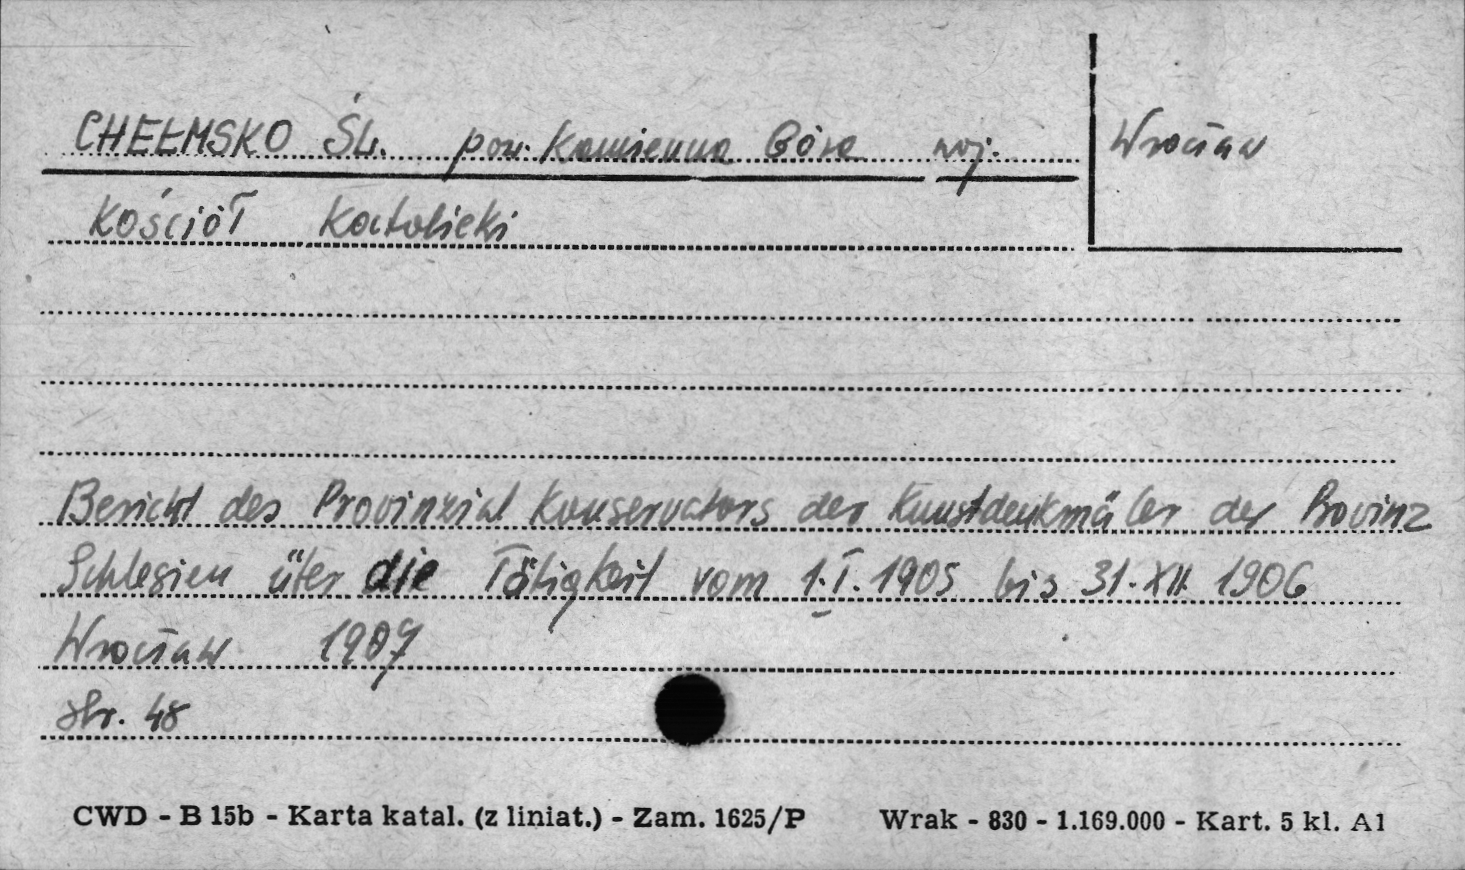 CHEŁMSKO ŚL. pow. Kamienna Góra woj. Wrocław
Kościół Katolicki
Bericht des Provinzial Konservators der Kunstdenkmäler der Provinz
Schlesien über die Tätigkeit vom 1.I.1905 bis 31.XII.1906
Wrocław 1907
str. 48
CWD - B 15b - Karta katal. (z liniat.) - Zam. 1625/P Wrak - 830 - 1.169.000 - Kart. 5 kl. A1